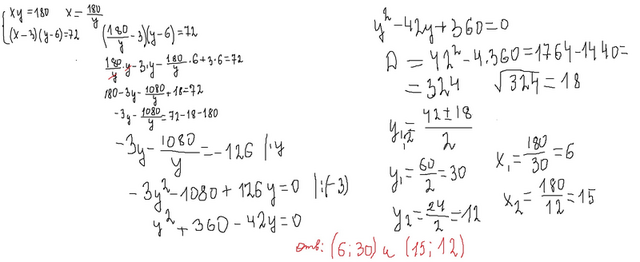 xy=180 x=180/y
(x-3)(y-6)=72
(180/y-3)(y-6)=72
180/y·y-3·y-180/y·6+3·6=72
180-3y-1080/y+18=72
-3y-1080/y=72-18-180
-3y-1080/y=-126 |·y
-3y²-1080+126y=0 |:(-3)
y²+360-42y=0
y²-42y+360=0
D=42²-4·360=1764-1440=
=324 √324=18
y1,2=42±18/2
y1=60/2=30
y2=24/2=12
x1=180/30=6
x2=180/12=15
отв: (6;30) и (15;12)